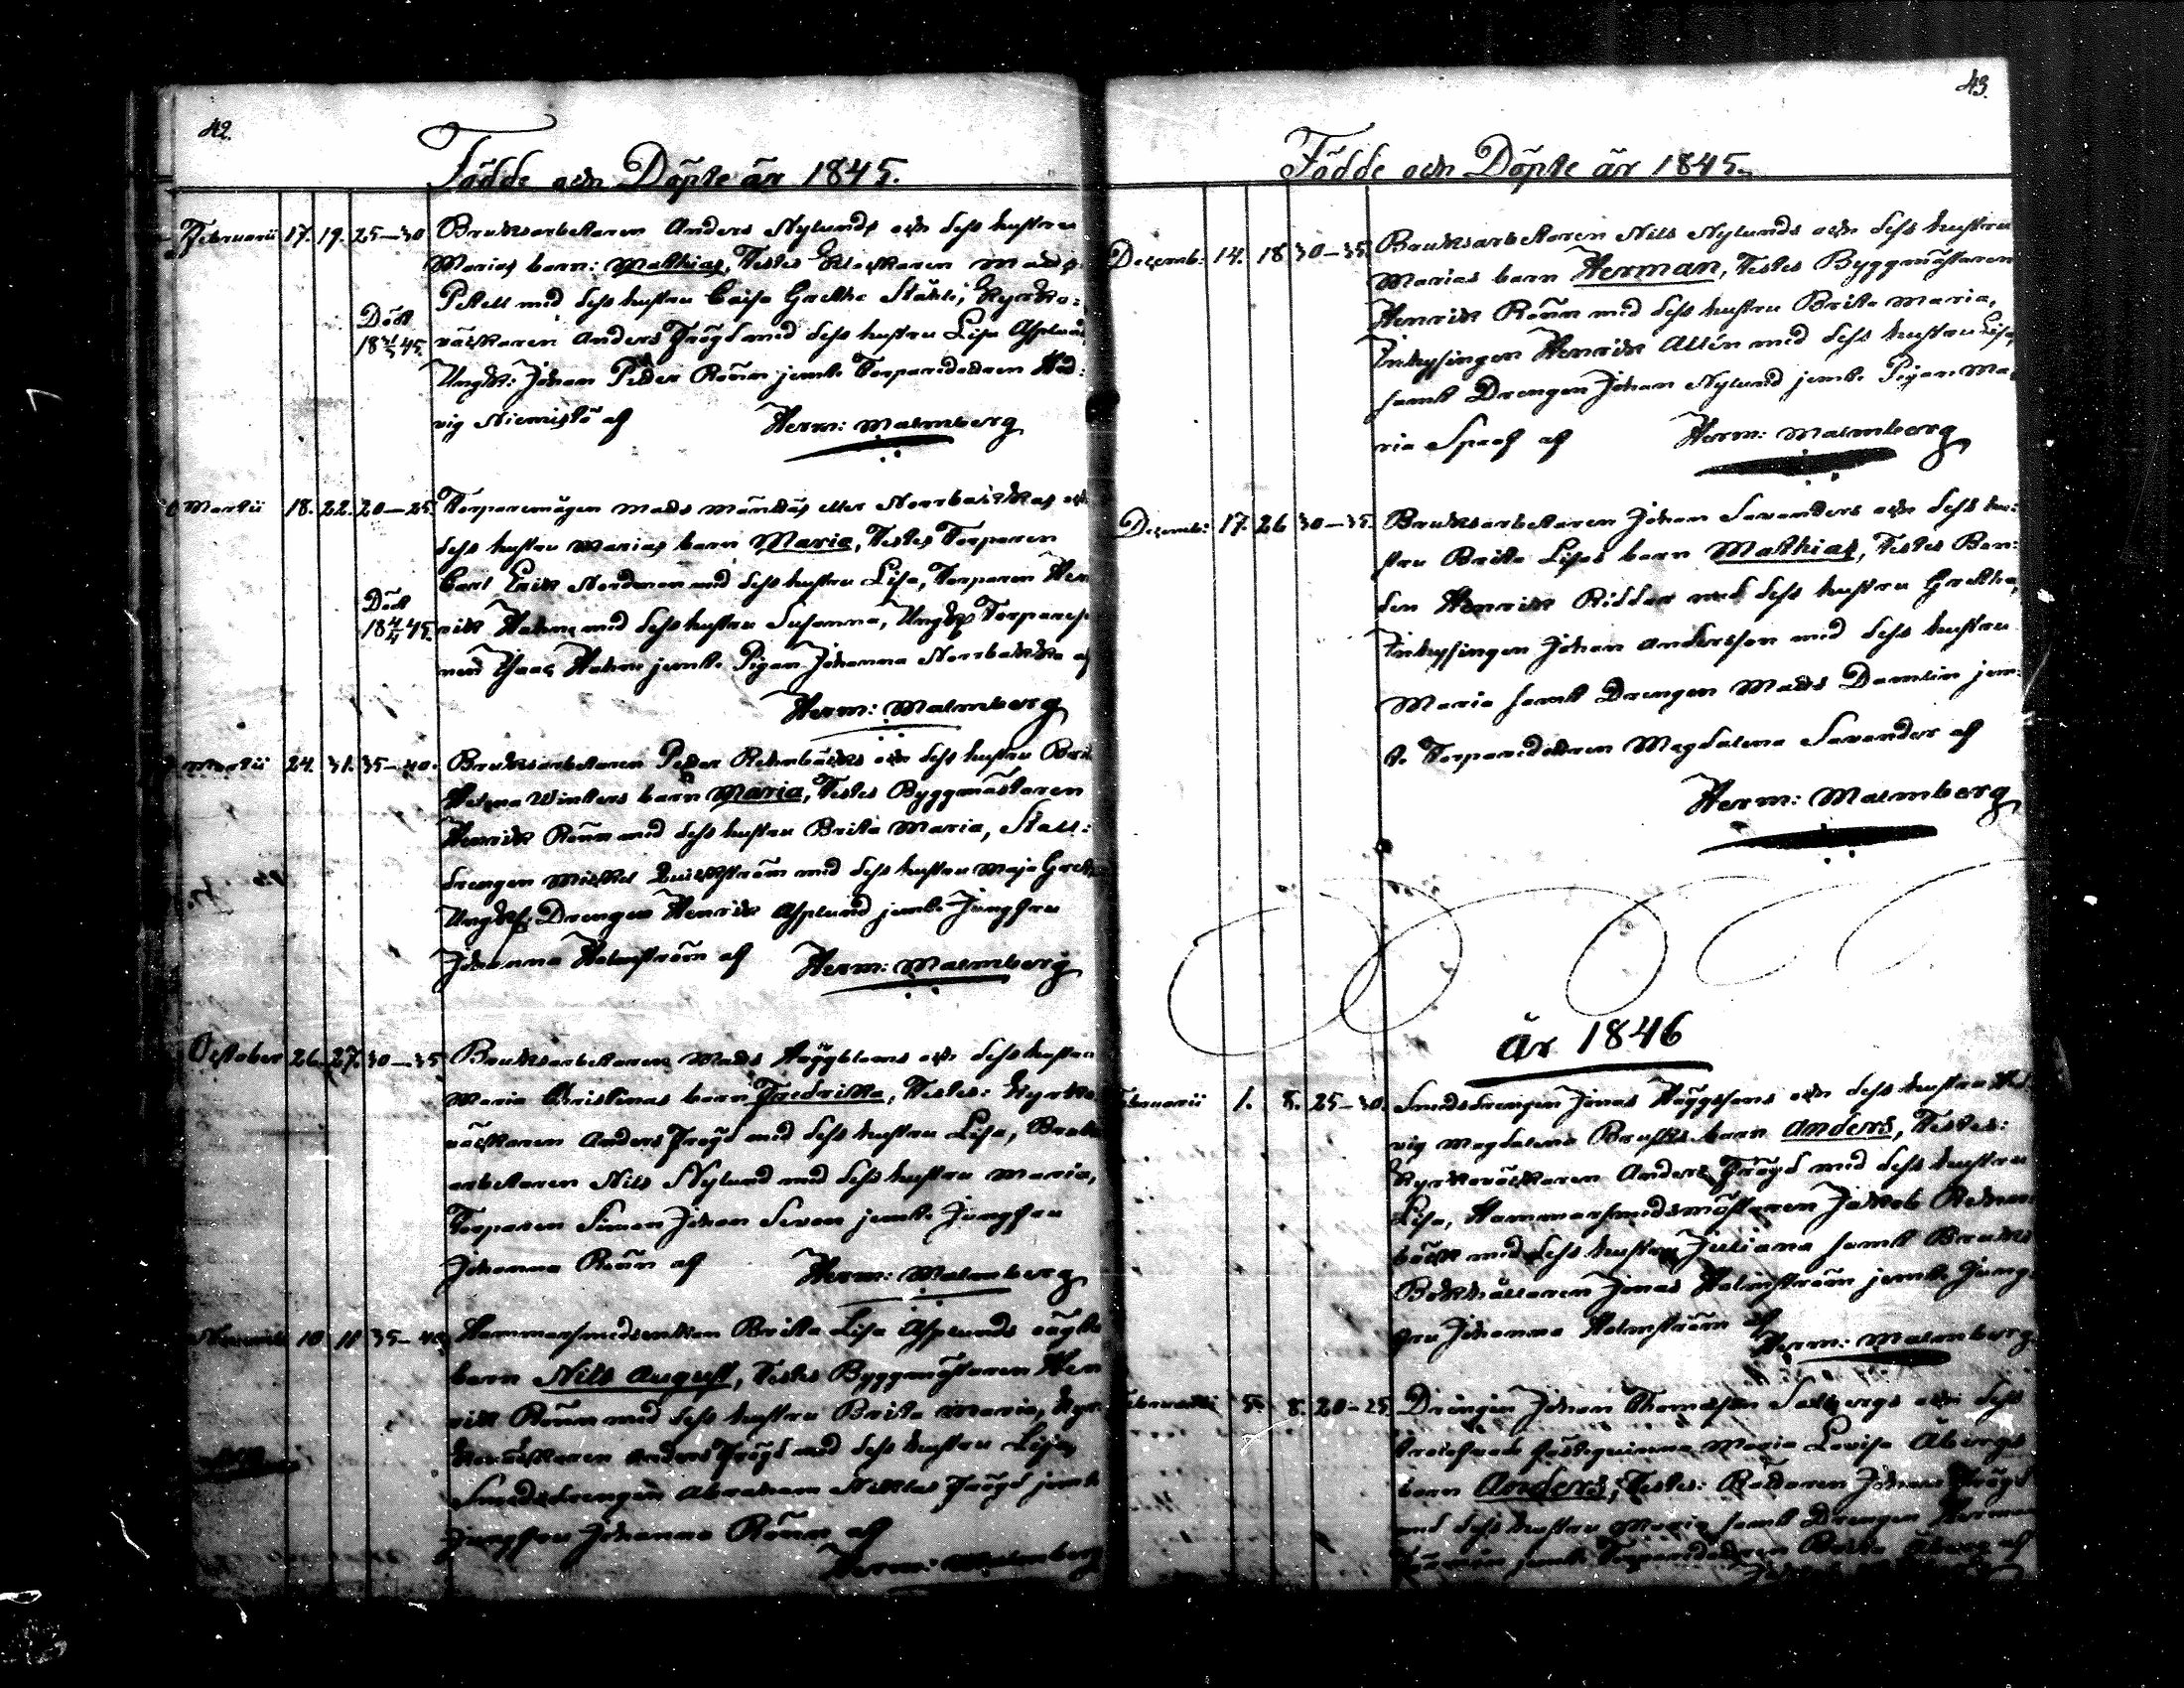 42.
Födde och Döpte år 1845.
Februarii 17. 19. 25–30 Bruksarbetaren Anders Nylunds och dess hustru
Marias barn: Matthias, Testes Klockaren Matts
Petell med dess hustru Caisa Gretha Ståhle, Kyrko-
Död
18 45. väcktaren Anders Frögd med dess hustru Lisa Asplund,
Ungk: Johan Petter Rönn jemte Torparedottren Hed:
vig Niemistö af Herm: Malmberg
Martii 18. 22. 20–25. Torparemågen Matts eller Norrbackas och
dess hustru Marias barn Maria, Testes Torparen
Carl Erik Nordman med dess hustru Lisa, Torparen Hen
Död
18 45. rik Holm med dess hustru Susanna, Ungk:
Isaac Holm jemte Pigan Johanna Norrbacka af
Herm: Malmberg
Martii 24. 31. 35–40. Bruksarbetaren Petter Rehnbäcks och dess hustru Brit
Helena Winters barn Maria, Testes Byggmästaren
Henrik Rönn med dess hustru Brita Maria, Stall:
drengen Mickel Quickström med dess hustru Maja Greta
Ungk: Drengen Henrik Asplund jemte Jungfru
Johanna Holmström af Herm: Malmberg
October 26. 27. 30–35 Bruksarbetaren Matts Häggbloms och dess hustru
Maria Christinas barn Fredrika, Testes: Kyrko
väcktaren Anders Frögd med dess hustru Lisa, Bruks
arbetaren Nils Nylund med dess hustru Maria,
Torparen Simon Johan Seven jemte Jungfru
Johanna Rönn af Herm: Malmberg
10 11 35–40 Hammarsmedsenkan Brita Lisa Asplunds oägta
barn Nils August, Testes Byggmästaren Hen
rik Rönn med dess hustru Brita Maria, Kyr
koväcktaren Anders Frögd med dess hustru Lisa,
Smedsdrengen Abraham Niklas Frögd jemte
Jungfru Johanna Rönn af
Herm: Malmberg
43.
Födde och Döpte år 1845.
Decemb: 14. 18 30–35. Bruksarbetaren Nils Nylunds och dess hustru
Marias barn Herman, Testes Byggmästaren
Henrik Rönn med dess hustru Brita Maria,
Inhysingen Henrik Allén med dess hustru Lisa,
samt Drengen Johan Nylund jemte Pigan Ma
ria Spaaf af Herm: Malmberg
Decemb: 17. 26 30–35. Bruksarbetaren Johan Savanders och dess hu:
stru Brita Lisas barn Mathias, Testes Bon:
den Henrik Riddar med dess hustru Gretha,
Inhysingen Johan Andersson med dess hustru
Maria samt Drengen Matts Damlin jem:
te Torparedottren Magdalena Savander af
Herm: Malmberg
År 1846
Februarii 1. 8. 25–30. Smedsdrengen Jonas Häggstens och dess hustru Hed
vig Magdalena barn Anders, Testes:
Kyrkoväcktaren Anders Frögd med dess hustru
Lisa, Hammarsmedsmästaren Jakob Rehn
bäck med dess hustru Juliana samt Bruks
Bokhållaren Jonas Holmström jemte Jung
fru Johanna Holmström af
Herm: Malmberg.
Februarii 5. 8. 20–25. Drengen Johan Thomasson och dess
Maria Lovisa Åbergs
barn Anders, Testes: Johan Frögd
med dess hustru Maria samt Drengen Herman
jemte Torparedottren Brita Åberg af